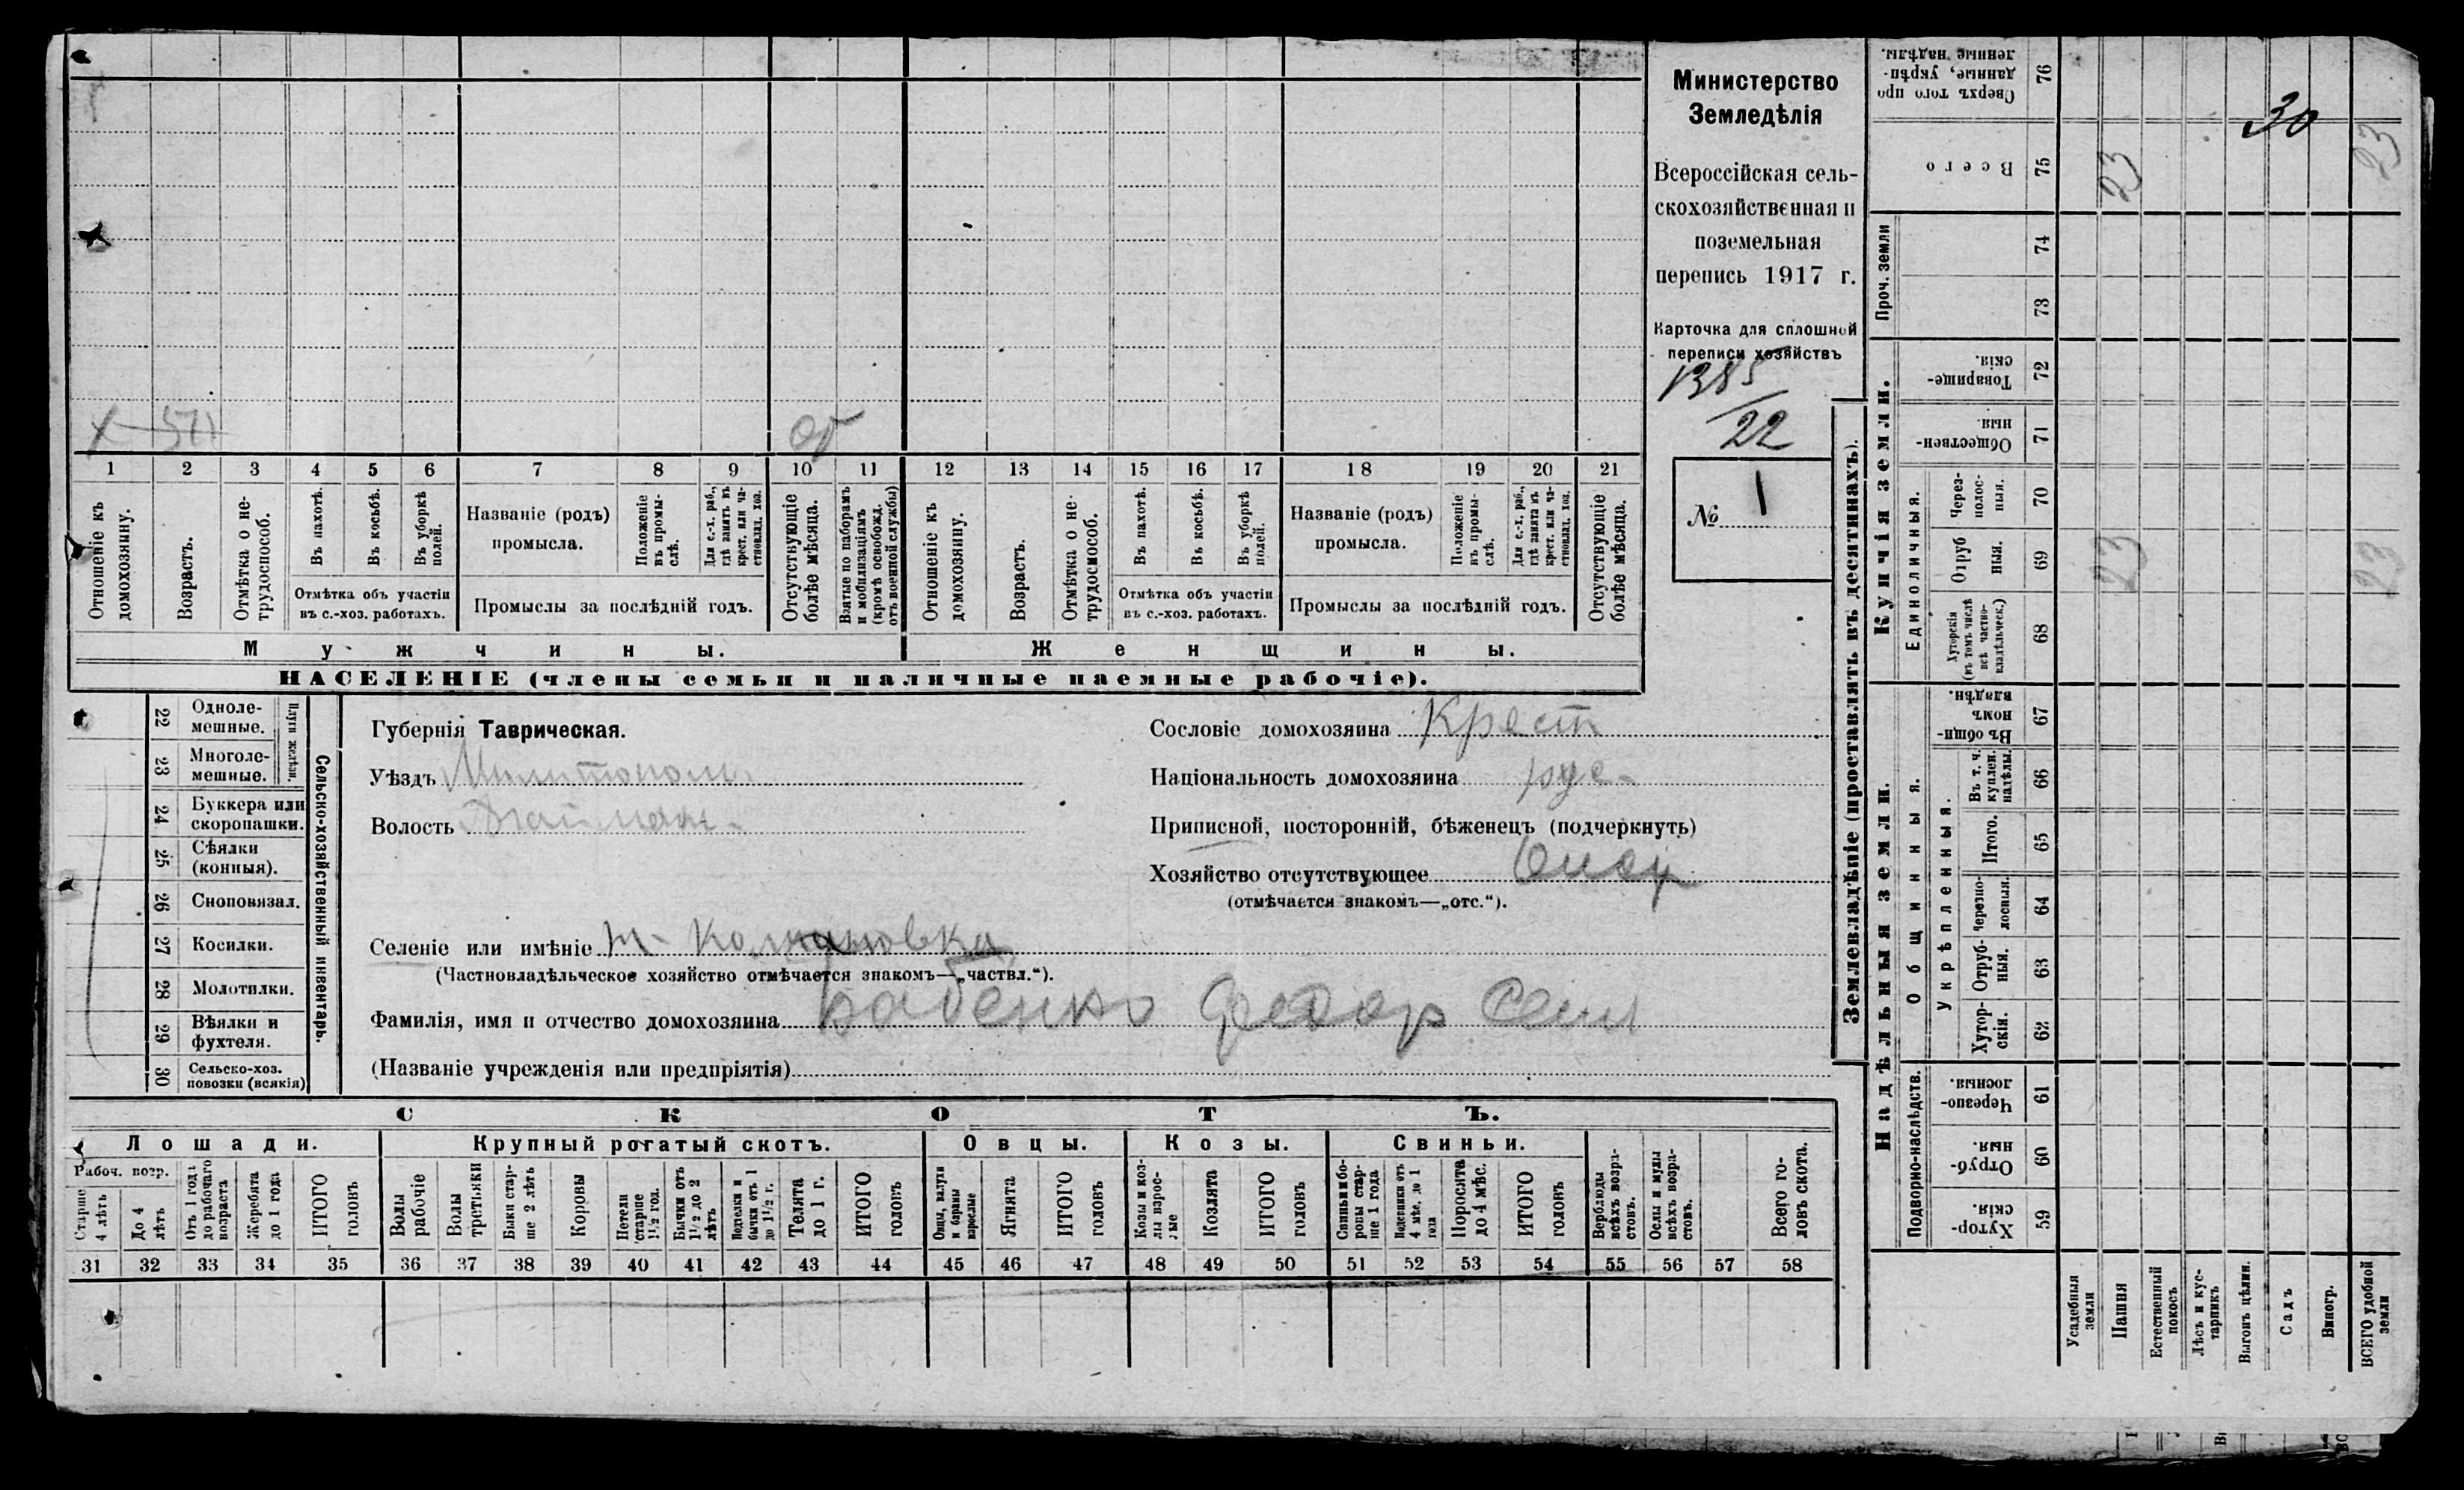 Министерство
Земледѣлія
Всероссійская сель-
скохозяйственная и
поземельная
перепись 1917 г.
Карточка для сплошной
переписи хозяйствъ
1385
22
№ 1
Х 51
1 2 3 4 5 6 7 8 9 10 11 12 13 14 15 16 17 18 19 20 21
Отношеніе къ домохозяину.
Возрастъ.
Отмѣтка о не-трудоспособ.
Въ пахотѣ.
Въ косьбѣ.
Въ уборкѣ полей.
Отмѣтка объ участіи
въ с.-хоз. работахъ.
Названіе (родъ)
промысла.
Положеніе въ промы-слѣ.
Для с.-х. раб., гдѣ занятъ въ крест. или ча-стновлад. хоз.
Промыслы за послѣдній годъ.
Отсутствующіе болѣе мѣсяца.
Взятые по наборамъ и мобилизаціямъ (кромѣ освобожд. отъ военной службы)
Отношеніе къ домохозяину.
Возрастъ.
Отмѣтка о не-трудоспособ.
Въ пахотѣ.
Въ косьбѣ.
Въ уборкѣ полей.
Отмѣтка объ участіи
въ с.-хоз. работахъ.
Названіе (родъ)
промысла.
Положеніе въ промы-слѣ.
Для с.-х. раб., гдѣ занята въ крест. или ча-стновлад. хоз.
Промыслы за послѣдній годъ.
Отсутствующіе болѣе мѣсяца.
Мужчины. Женщины.
НАСЕЛЕНІЕ (члены семьи и наличные наемные рабочіе).
Сельско-хозяйственный инвентарь.
Плуги желѣзн.
22 Одноле-мешные.
23 Многоле-мешные.
24 Буккера или скоропашки.
25 Сѣялки (конныя).
26 Сноповязал.
27 Косилки.
28 Молотилки.
29 Вѣялки и фухтеля.
30 Сельско-хоз. повозки (всякія)
Губернія Таврическая.
Уѣздъ Милитополь.
Волость
Сословіе домохозяина Крест
Національность домохозяина рус-
Приписной, посторонній, бѣженецъ (подчеркнуть)
Хозяйство отсутствующее
(отмѣчается знакомъ—„отс.“).
Селеніе или имѣніе
(Частновладѣльческое хозяйство отмѣчается знакомъ—„частвл.“).
Фамилія, имя и отчество домохозяина Бабенко Федор Семі
(Названіе учрежденія или предпріятія)
СКОТЪ.
Лошади. Крупный рогатый скотъ. Овцы. Козы. Свиньи.
Рабоч. возр.
Старше 4 лѣтъ
До 4 лѣтъ
Отъ 1 года до рабочаго возраста
Жеребята до 1 года
ИТОГО головъ
Волы рабочіе
Волы третьяки
Быки стар-ше 2 лѣтъ
Коровы
Нетели старше 1½ год.
Бычки отъ 1½ до 2 лѣтъ
Подтелки и бычки отъ 1 до 1½ г.
Телята до 1 г.
ИТОГО головъ
Овцы, валухи и бараны взрослые
Ягнята
ИТОГО головъ
Козы и коз-лы взрос-лые
Козлята
ИТОГО головъ
Свиньи и бо-ровы стар-ше 1 года
Подсвинки отъ 4 мѣс. до 1 года
Поросята до 4 мѣс.
ИТОГО головъ
Верблюды всѣхъ возра-стовъ.
Ослы и мулы всѣхъ возра-стовъ.
Всего го-ловъ скота.
31 32 33 34 35 36 37 38 39 40 41 42 43 44 45 46 47 48 49 50 51 52 53 54 55 56 57 58
Землевладѣніе (проставлять въ десятинахъ).
Купчія земли.
Надѣльныя земли.
Сверхъ того про-данные, укрѣп-ленные надѣлы. 76
Всего 75 23 30 23
Проч. земли 74 73
Товарище-скія. 72
Обществен-ныя. 71
Единоличныя.
Через-полос-ныя. 70
Отруб-ныя. 69 23 23
Хуторскія (въ томъ числѣ всѣ частно-владѣльческ.) 68
Общинныя.
Въ общи-номъ владѣн. 67
Укрѣпленныя.
Въ т. ч. куплен. надѣлы. 66
Итого. 65
Черезпо-лосныя. 64
Отруб-ныя. 63
Хутор-скія. 62
Подворно-наслѣдств.
Черезпо-лосныя. 61
Отруб-ныя. 60
Хутор-скія. 59
Усадебныя земли
Пашня
Естественный покосъ
Лѣсъ и кус-тарникъ
Выгонъ цѣлин.
Садъ
Виногр.
ВСЕГО удобной земли